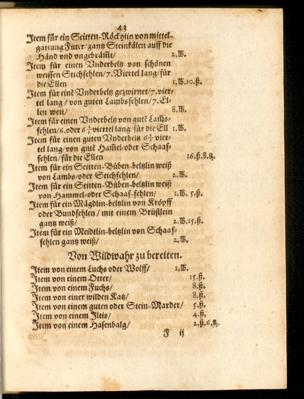 43
Item für ein Seitten-Röcklin von mittel-
gattung Futer/ gantz Steinkälen auff die
Händ und vngebrämt/ 2.W.
Item für einen Vnderbelz von schönen
weissen Stichfehlen/ 7. Viertel lang/ für
die Ellen 1.W.10.ß.
Item für eind Vnderbelz gezwirnet/ 7. vier-
tel lang/ von guten Lambsfehlen/ 7. El-
len weit/ 8.W.
Item für einen Vnderbelz von gute
fehlen/ 6. oder 6½ viertel lang/ für die Ell 1.W.
Item für einen guten Vnderbelz 6½ vier-
tel lang/ von gute Hamel oder Schaaf-
fehlen/ für die Ellen 16.ß.8.₰.
Item für ein Seitten-Büben-beltzlin weiß
von Lambs- oder Stichfehlen/ 2.W.
Item für ein Seitten-Büben-beltzlin weiß
von Hammel- oder Schaaf-fehlen/ 1.W. 5.ß.
Item für ein Mägdlin-beltzlin von Kröpff
oder Bundfehlen/ mit einem Brüßlein
gantz weiß/ 2.W.15.ß.
Item für ein Meidelin-beltzlin von Schaaf-
fehlen gantz weiß/ 2.W.
Von Wildwahr zu bereiten.
Item von einem Luchs oder Wolff/ 1.W.
Item von einem Otter/ 15.ß.
Item von einem Fuchs/ 8.ß.
Item von einer wilden Katz/ 8.ß.
Item von einem guten oder Stein-Marder/ 5.ß.
Item von einem Iltis/ 4.ß.
Item von einem Hasenbalg/ 2.ß.6.₰.
F ij